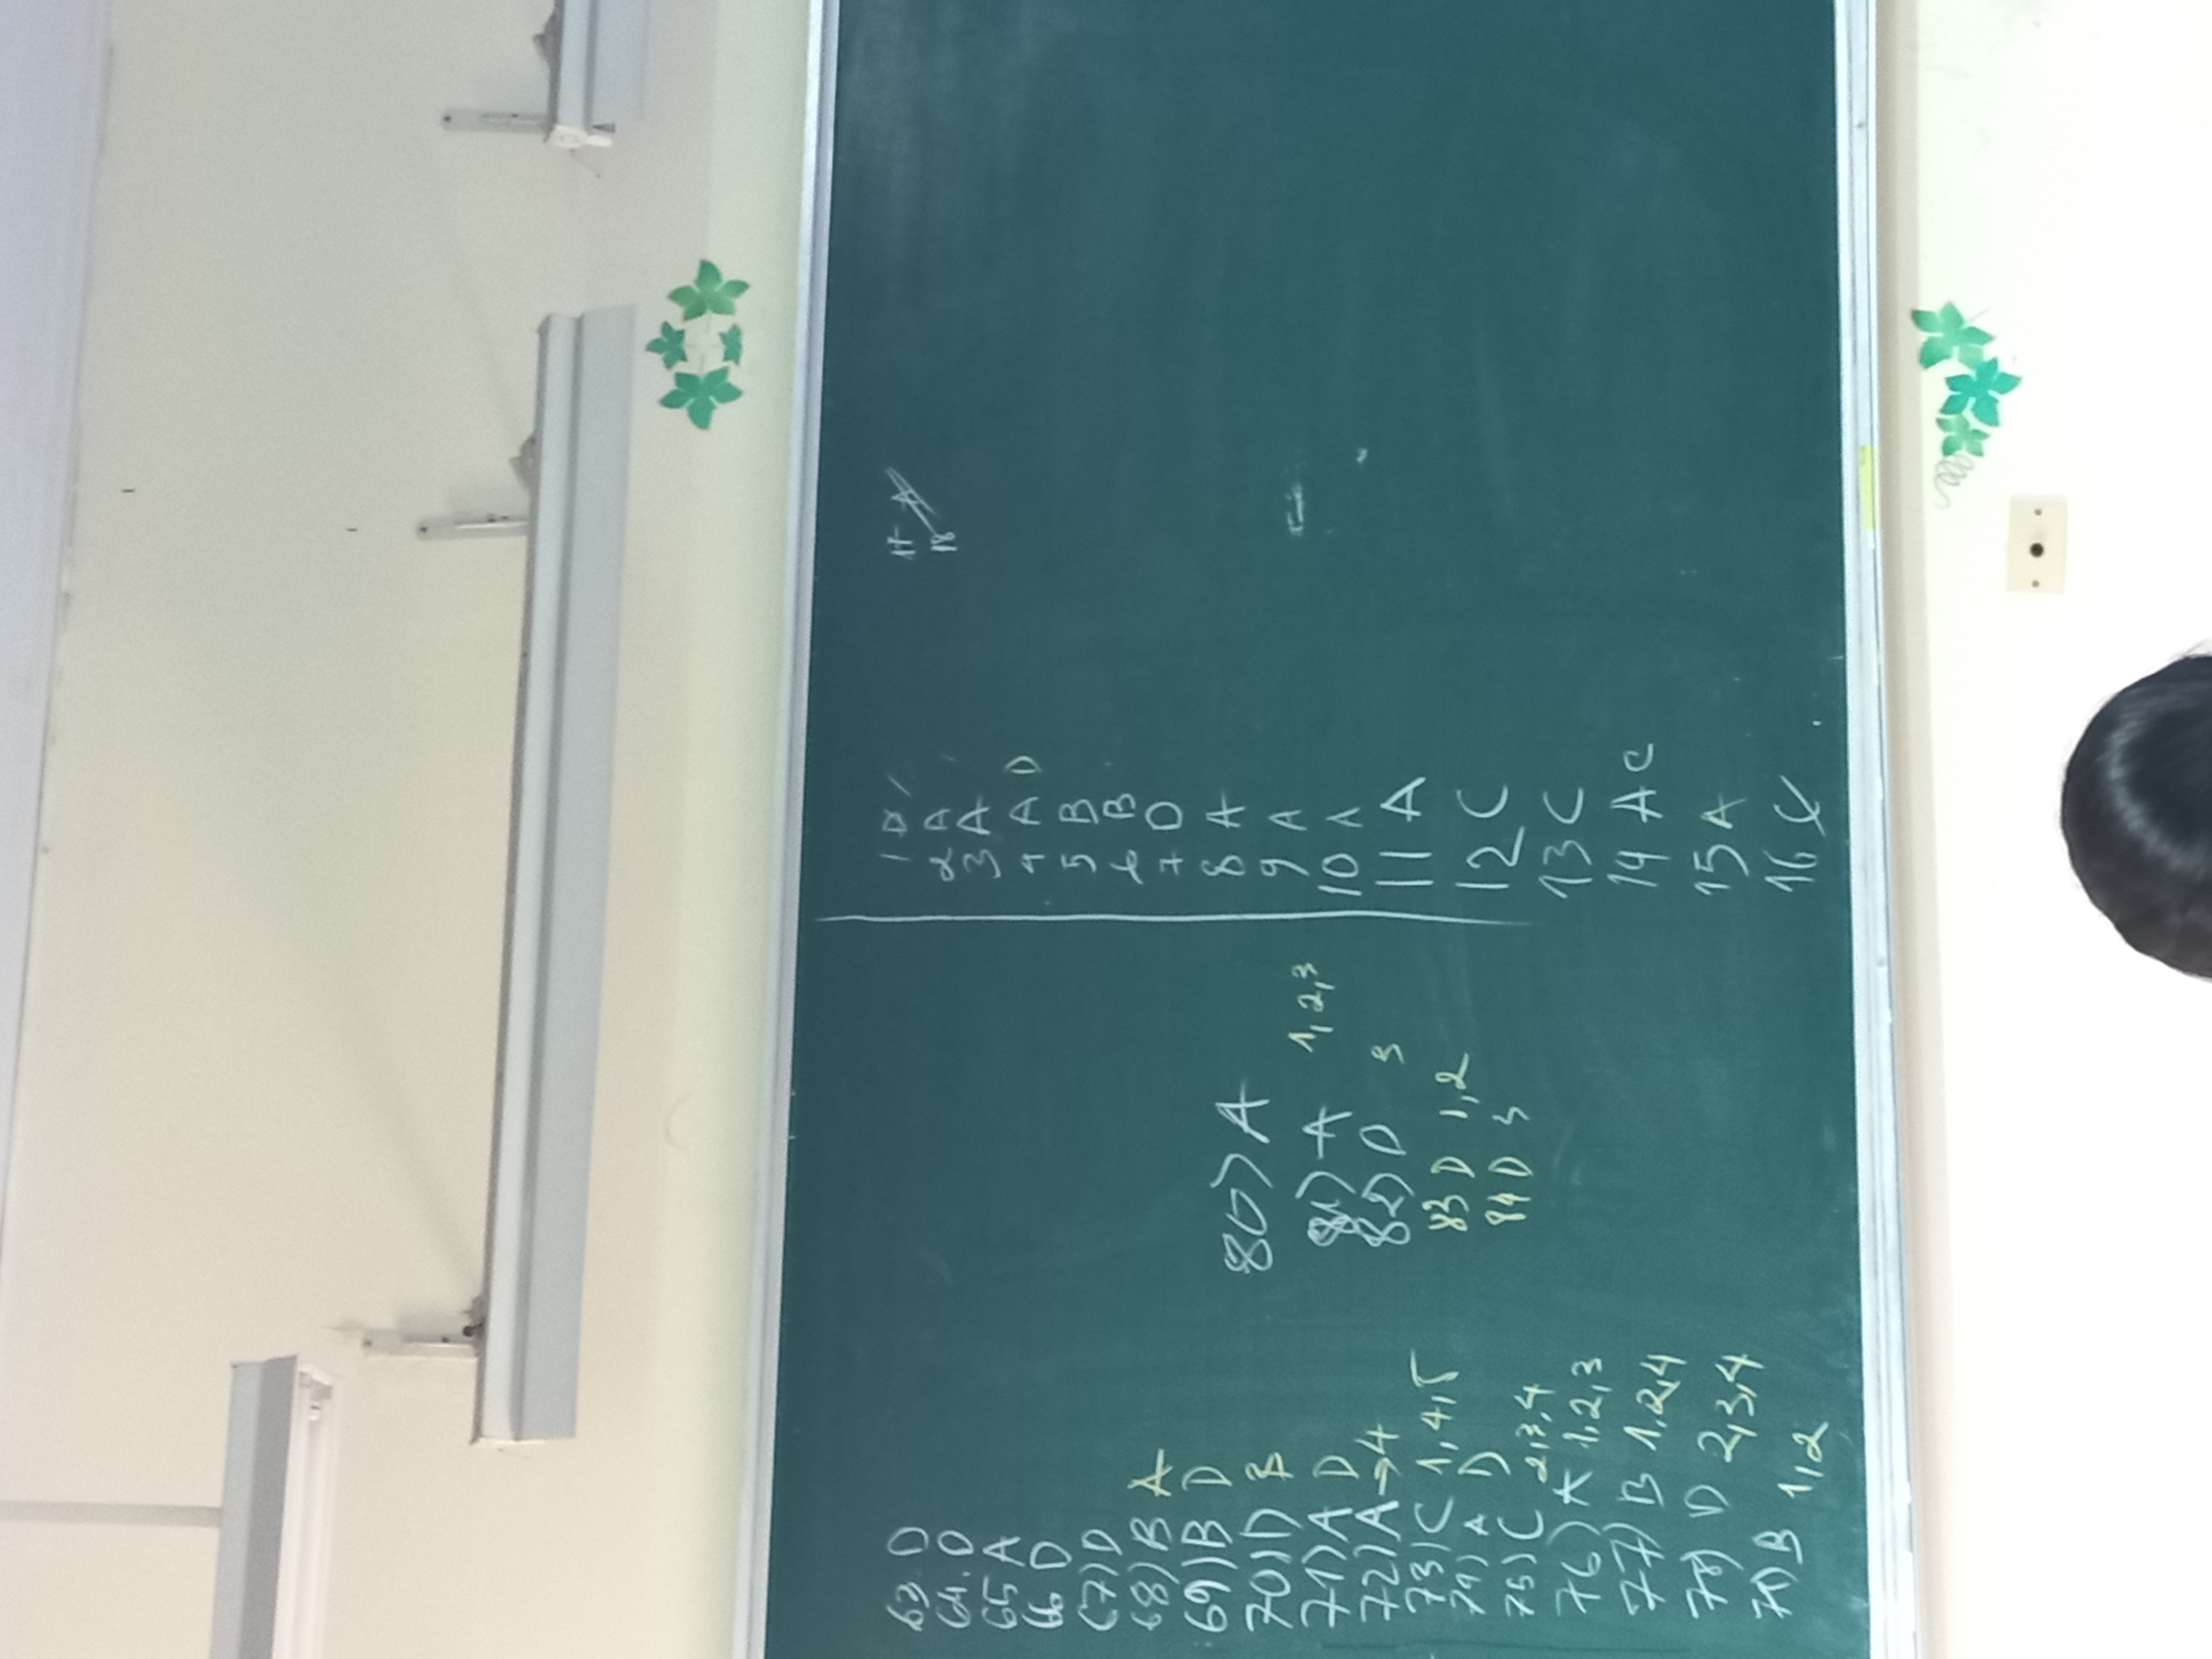 63. D
64. D
65 A
66 D
67) D
68) B A
69) B D
70) D B
71) A D
72) A → 4
73) C 1,4,5
74) A D
75) C 2,3,4
76) A 1,2,3
77) B 1,2,4
78) D 2,3,4
79) B 1,2
80) A
81) A 1,2,3
82) D 3
83 D 1,2
84 D 3
1 D
2 A
3 A
4 A D
5 B
6 B
7 D
8 A
9 A
10 A
11 A
12 C
13 C
14 A C
15 A
16 C
17 A
18